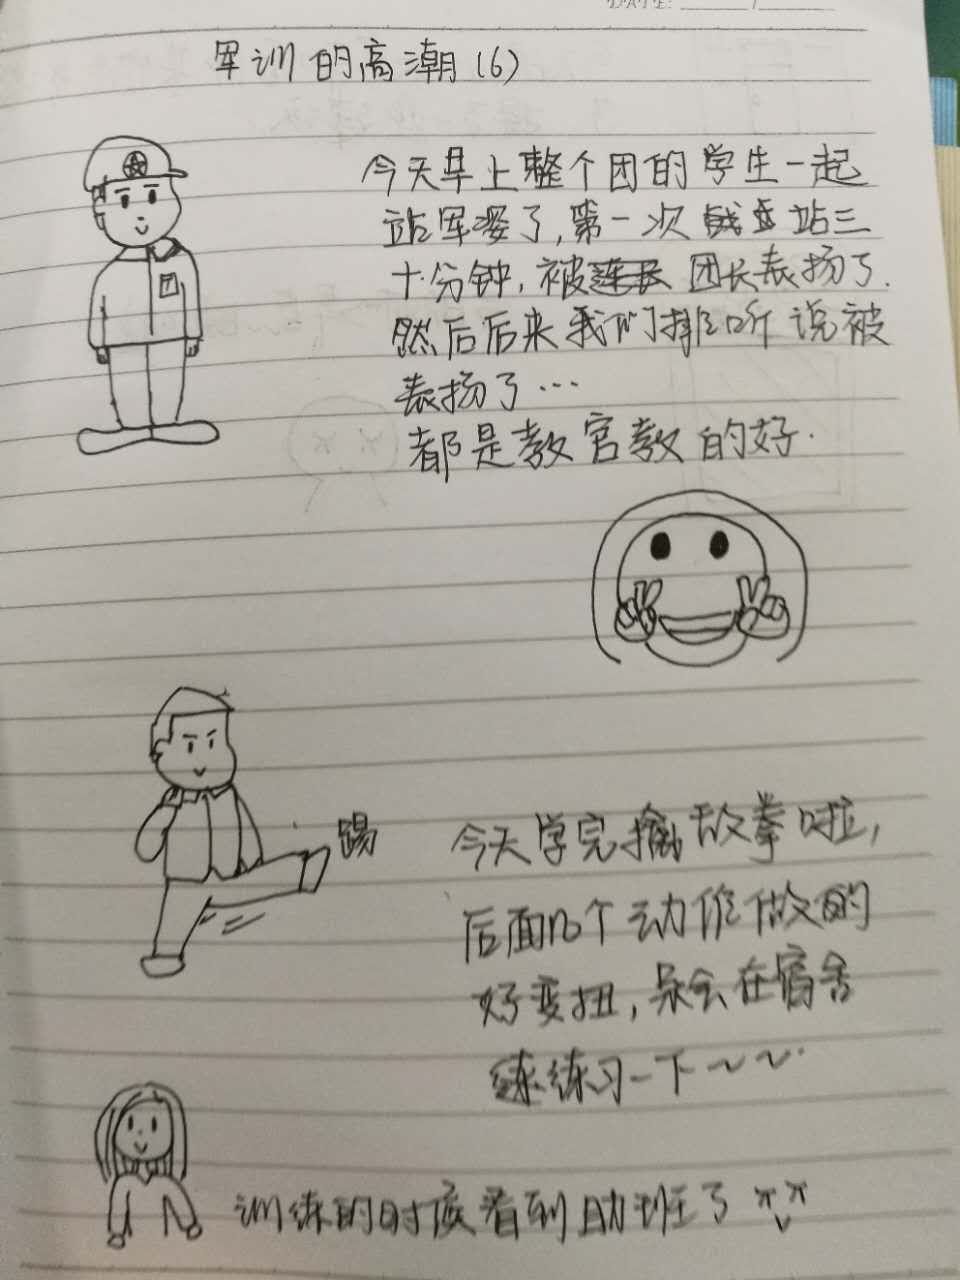 军训的高潮(6)
今天早上整个团的学生一起
站军姿了,第一次站三
十分钟,被团长表扬了.
然后后来我们排听说被
表扬了…
都是教官教的好.
踢
今天学完擒敌拳啦,
后面几个动作做的
好变扭,呆会在宿舍
练习一下~~.
训练的时候看到助班了